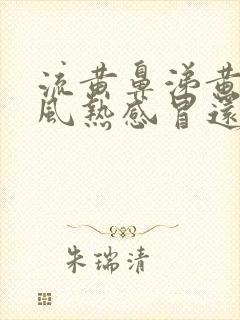 流黄鼻涕黄
風熱感冒還
朱瑞清